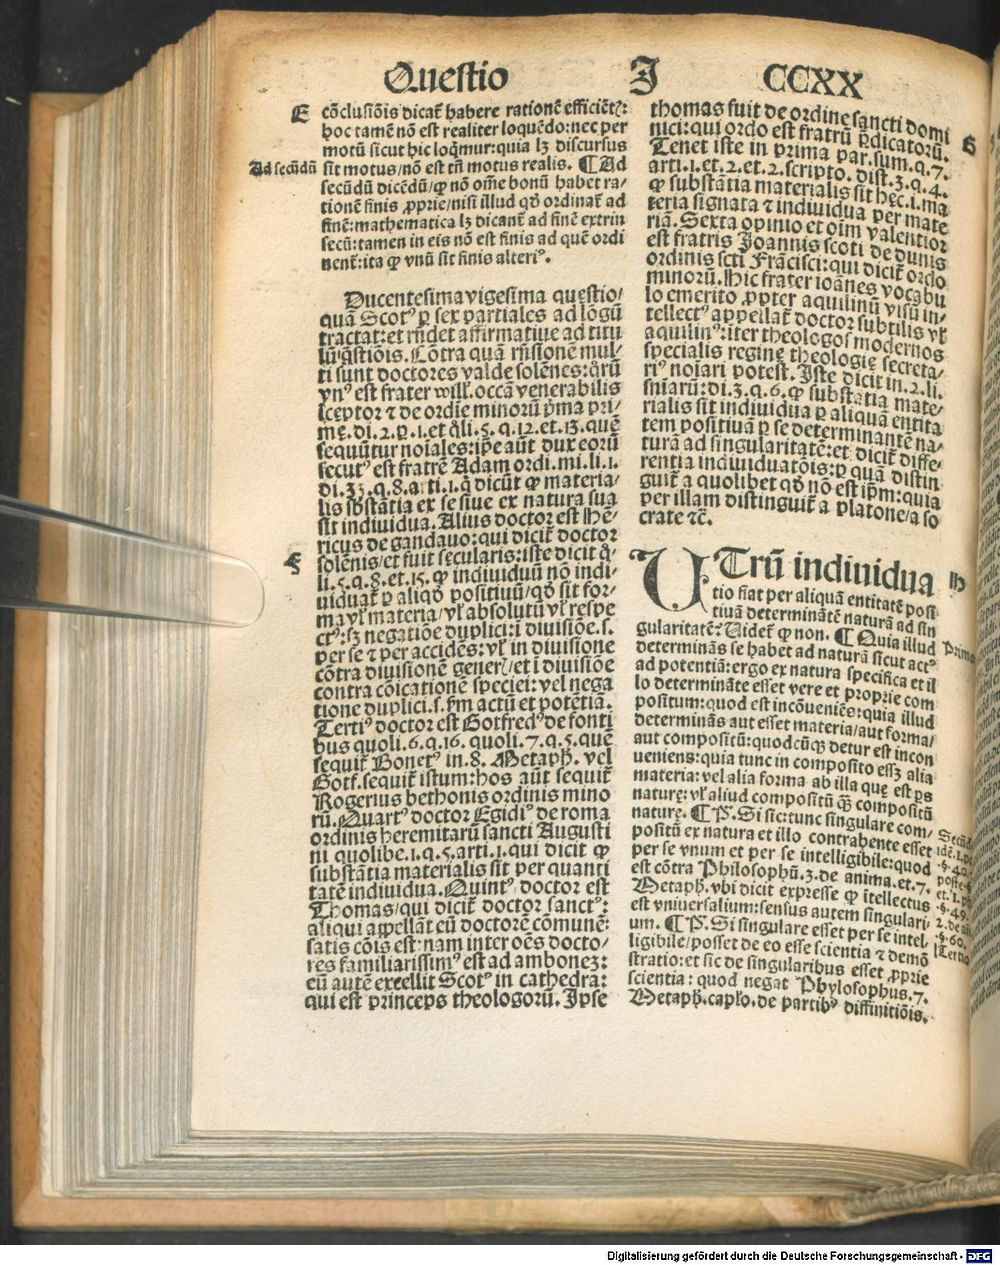 Questio I CCXX
E
cōclusiōis dicat̃ habere rationē efficiētꝭ:
hoc tamē nō est realiter loquēdo: nec per
motū sicut hic loq̄mur: quia lꝫ discursus
Ad secūdū
sit motus/nō est tñ motus realis. ¶ Ad
secūdū dicēdū/ꝙ nō om̄e bonū habet ra⸗
tionē finis ꝓprie/nisi illud qḋ ordinat̃ ad
finē: mathematica lꝫ dicant̃ ad finē extrin
secū: tamen in eis nō est finis ad quē ordi
nent̃: ita ꝙ vnū sit finis alteriꝰ.
Ducentesima vigesima questio/
quā Scotꝰ ꝑ sex partiales ad lōgū
tractat: et rñdet affirmatiue ad titu
lū q̄stiōis. Cōtra quā rñsionē mul⸗
ti sunt doctores valde solēnes: q̄rū
vnꝰ est frater will. occā venerabilis
īceptor ⁊ de ordīe minorū p̄ma pri⸗
mę. di. 2. p. 1. et q̄li. 5. q. 12. et. 13. quē
sequūtur noīales: ip̄e aūt dux eorū
secutꝰ est fratrē Adam ordi. mi. li. 1.
di. 33. q. 8. a: ti. 1. q̄ dicūt ꝙ materia⸗
lis sb̄stātia ex se siue ex natura sua
sit indiuidua. Alius doctor est Hē⸗
ricus de gandauo: qui dicit̃ doctor
F
solēnis/et fuit secularis: iste dicit q̄⸗
li. 5. q. 8. et. 15. ꝙ indiuiduū nō indi⸗
uiduat̃ ꝑ aliqḋ positiuū/qḋ sit for⸗
ma vl̃ materia/vl̃ absolutū vl̃ respe
ctꝰ: sꝫ negatiōe duplici: ī diuisiōe. s.
per se ⁊ per accidēs: vl̃ in diuisione
cōtra diuisionē generꝭ/et ī diuisiōe
contra cōicationē speciei: vel nega
tione duplici. s. fm actū et potētiā.
Tertiꝰ doctor est Gotfredꝰ de fonti
bus quoli. 6. q. 16. quoli. 7. q. 5. quē
sequit̃ Bonetꝰ in. 8. Metaph. vel
Gotf. sequit̃ istum: hos aūt sequit̃
Rogerius bethonis ordinis mino
rū. Quartꝰ doctor Egidiꝰ de roma
ordinis heremitarū sancti Augusti
ni quolibe. 1. q. 5. arti. 1. qui dicit ꝙ
substātia materialis sit per quanti
tatē indiuidua. Quintꝰ doctor est
Thomas/qui dicit̃ doctor sanctꝰ:
aliqui appellāt eū doctorē cōmunē:
satis cōis est: nam inter oēs docto⸗
res familiarissimꝰ est ad ambonez:
eū autē excellit Scotꝰ in cathedra:
qui est princeps theologorū. Ipse
thomas fuit de ordine sancti domi
nici: qui ordo est fratrū p̄dicatorū.
G
Tenet iste in prima par. sum. q. 7.
arti. 1. et. 2. et. 2. scripto. dist. 3. q. 4.
ꝙ substātia materialis sit hęc. i. ma
teria signata ⁊ indiuidua per mate
riā. Sexta opinio et oīm valentior
est fratris Joannis scoti de dunis
ordinis scti Frācisci: qui dicit̃ ordo
minorū. Hic frater ioānes vocabu
lo emerito ꝓpter aquilinū visū in⸗
tellectꝰ appellat̃ doctor subtilis vl̃
aquilinꝰ: iter theologos modernos
specialis reginę theologię secreta⸗
riꝰ noīari potest. Iste dicit in. 2. li.
sniarū: di. 3. q. 6. ꝙ substātia mate⸗
rialis sit indiuidua ꝑ aliquā entita
tem positiuā ꝑ se determinantē na⸗
turā ad singularitatē: et dicit̃ diffe⸗
rentia indiuiduatōis: ꝑ quā distin
guit̃ a quolibet qḋ nō est ip̄m: quia
per illam distinguit̃ a platone/a so
crate ⁊c̄.
UTrū indiuidua
H
tio fiat per aliquā entitatē posi
tiuā determināntē naturā ad sin
gularitatē? Uidet̃ ꝙ non. ¶ Quia illud
Primo
determinās se habet ad naturā sicut actꝰ
ad potentiā: ergo ex natura specifica et il
lo determinate esset vere et proprie com
positum: quod est incōueniēs: quia illud
determinās aut esset materia/aut forma/
aut compositū: quodcūqꝫ detur est incon
ueniens: quia tunc in composito essꝫ alia
materia: vel alia forma ab illa quę est ꝑs
naturę: vl̃ aliud compositū q̄ꝫ compositū
naturę. ¶ P. Si sic: tunc singulare com⸗
positū ex natura et illo contrahente esset
per se vnum et per se intelligibile: quod
est cōtra Philosophū. 3. de anima. et. 7.
Metaph. vbi dicit expresse ꝙ ītellectus
est vniuersalium: sensus autem singulari
um. ¶ P. Si singulare esset per se intel⸗
ligibile/posset de eo esse scientia ⁊ demō
Tertio
stratio: et sic de singularibus esset ꝓprie
scientia: quod negat Phylosophus. 7.
Metaph. caplo. de partibꝰ diffinitiōis.
Digitalisierung gefördert durch die Deutsche Forschungsgemeinschaft - DFG